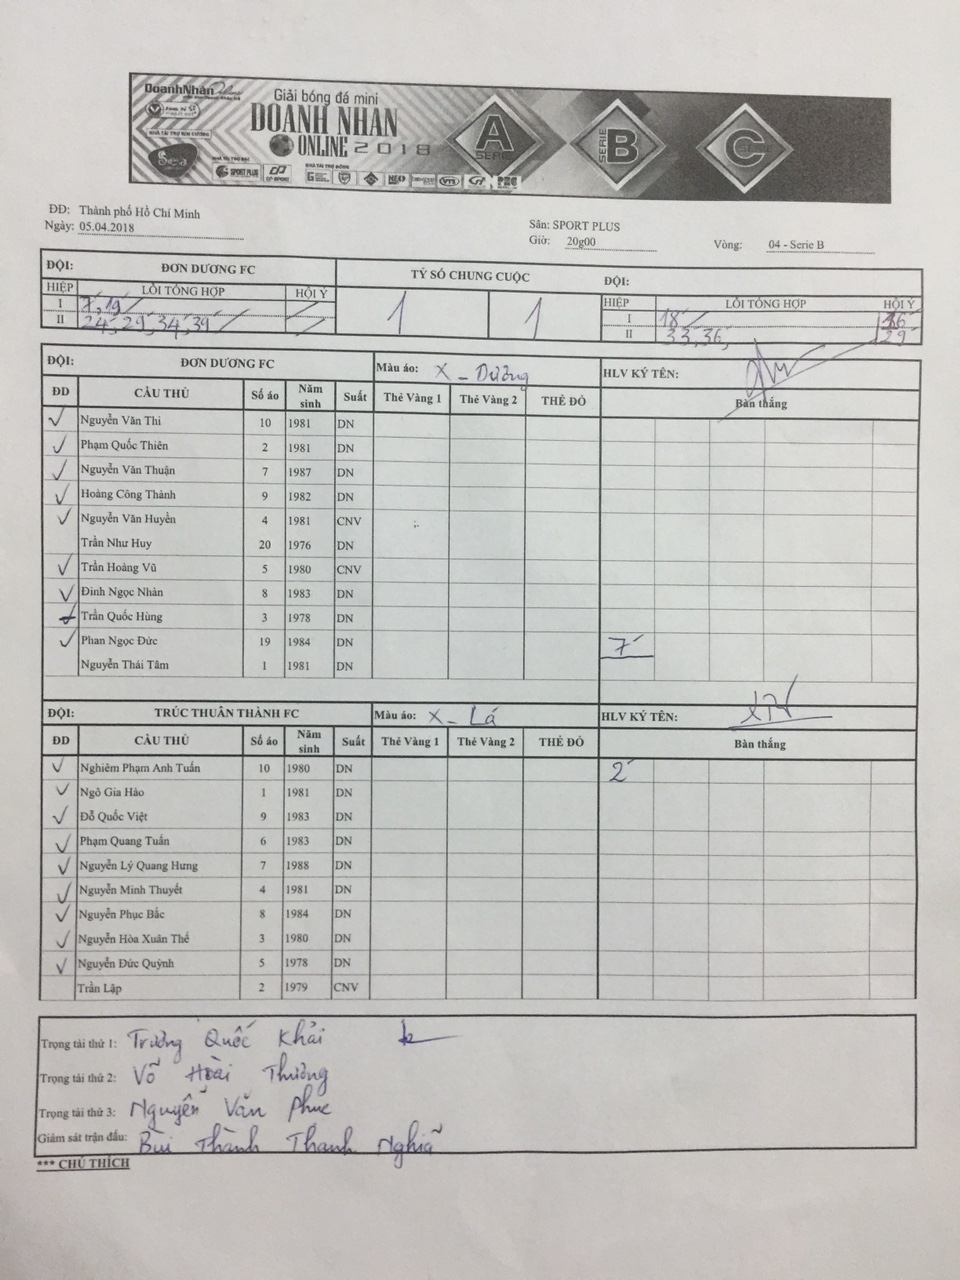 DoanhNhân Online
Giải bóng đá mini
DOANH NHÂN
ONLINE 2018
NHÀ TÀI TRỢ KIM CƯƠNG
NHÀ TÀI TRỢ BẠC
NHÀ TÀI TRỢ ĐỒNG
SPORT PLUS
A SERIE
SERIE B
C
ĐĐ: Thành phố Hồ Chí Minh
Sân: SPORT PLUS
Ngày: 05.04.2018
Giờ: 20g00 Vòng: 04 - Serie B
ĐỘI: ĐƠN DƯƠNG FC TỶ SỐ CHUNG CUỘC ĐỘI:
HIỆP LỖI TỔNG HỢP HỘI Ý 1 1 HIỆP LỖI TỔNG HỢP HỘI Ý
I 7', 19' I 18' 16'
II 24', 29', 34', 39' II 33', 36', 29'
ĐỘI: ĐƠN DƯƠNG FC Màu áo: X - Dương HLV KÝ TÊN:
ĐD CẦU THỦ Số áo Năm sinh Suất Thẻ Vàng 1 Thẻ Vàng 2 THẺ ĐỎ Bàn thắng
✓ Nguyễn Văn Thi 10 1981 DN
✓ Phạm Quốc Thiên 2 1981 DN
✓ Nguyễn Văn Thuận 7 1987 DN
✓ Hoàng Công Thành 9 1982 DN
✓ Nguyễn Văn Huyền 4 1981 CNV
Trần Như Huy 20 1976 DN
✓ Trần Hoàng Vũ 5 1980 CNV
✓ Đinh Ngọc Nhàn 8 1983 DN
Trần Quốc Hùng 3 1978 DN
✓ Phan Ngọc Đức 19 1984 DN 7'
Nguyễn Thái Tâm 1 1981 DN
ĐỘI: TRÚC THUÂN THÀNH FC Màu áo: X - Lá HLV KÝ TÊN:
ĐD CẦU THỦ Số áo Năm sinh Suất Thẻ Vàng 1 Thẻ Vàng 2 THẺ ĐỎ Bàn thắng
✓ Nghiêm Phạm Anh Tuấn 10 1980 DN 2'
✓ Ngô Gia Hảo 1 1981 DN
✓ Đỗ Quốc Việt 9 1983 DN
✓ Phạm Quang Tuấn 6 1983 DN
✓ Nguyễn Lý Quang Hưng 7 1988 DN
✓ Nguyễn Minh Thuyết 4 1981 DN
✓ Nguyễn Phục Bắc 8 1984 DN
✓ Nguyễn Hòa Xuân Thế 3 1980 DN
✓ Nguyễn Đức Quỳnh 5 1978 DN
Trần Lập 2 1979 CNV
Trọng tài thứ 1: Trương Quốc Khải
Trọng tài thứ 2: Võ Hoài Thương
Trọng tài thứ 3: Nguyễn Văn Phúc
Giám sát trận đấu: Bùi Thành Thanh Nghĩa
*** CHÚ THÍCH